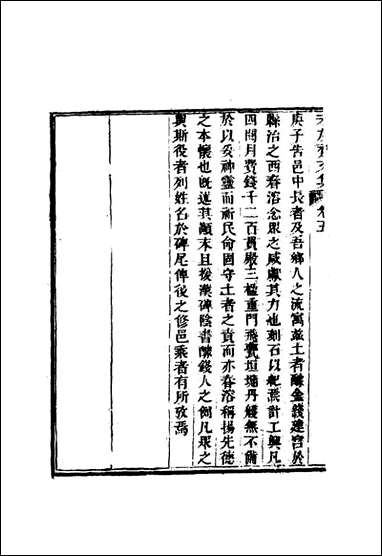 庚子告邑中長者及吾鄉人之流寓茲土者醵金錢建宮於
縣治之西春溶念眾之咸獻其力也刻石以紀焉計工興凡
四閱月費錢千二百貫殿三楹重門飛甍垣墉丹雘無不備
於以妥神靈而祈民命固守土者之責而亦春溶稱揚先德
之本懷也既述其顛末且援漢碑陰書醵錢人之例凡眾之
與斯役者列姓名於碑尾俾後之修邑乘者有所攷焉